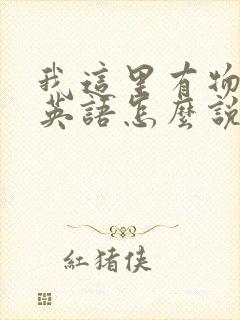 我這里有物
英語怎麼說
紅豬俠